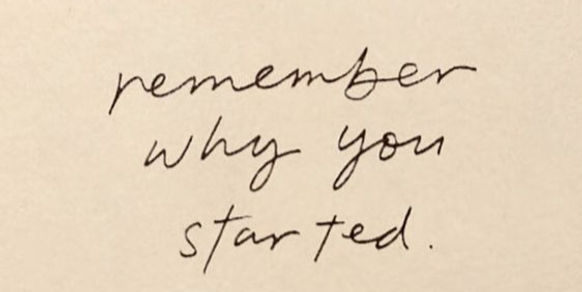 remember
why you
started.